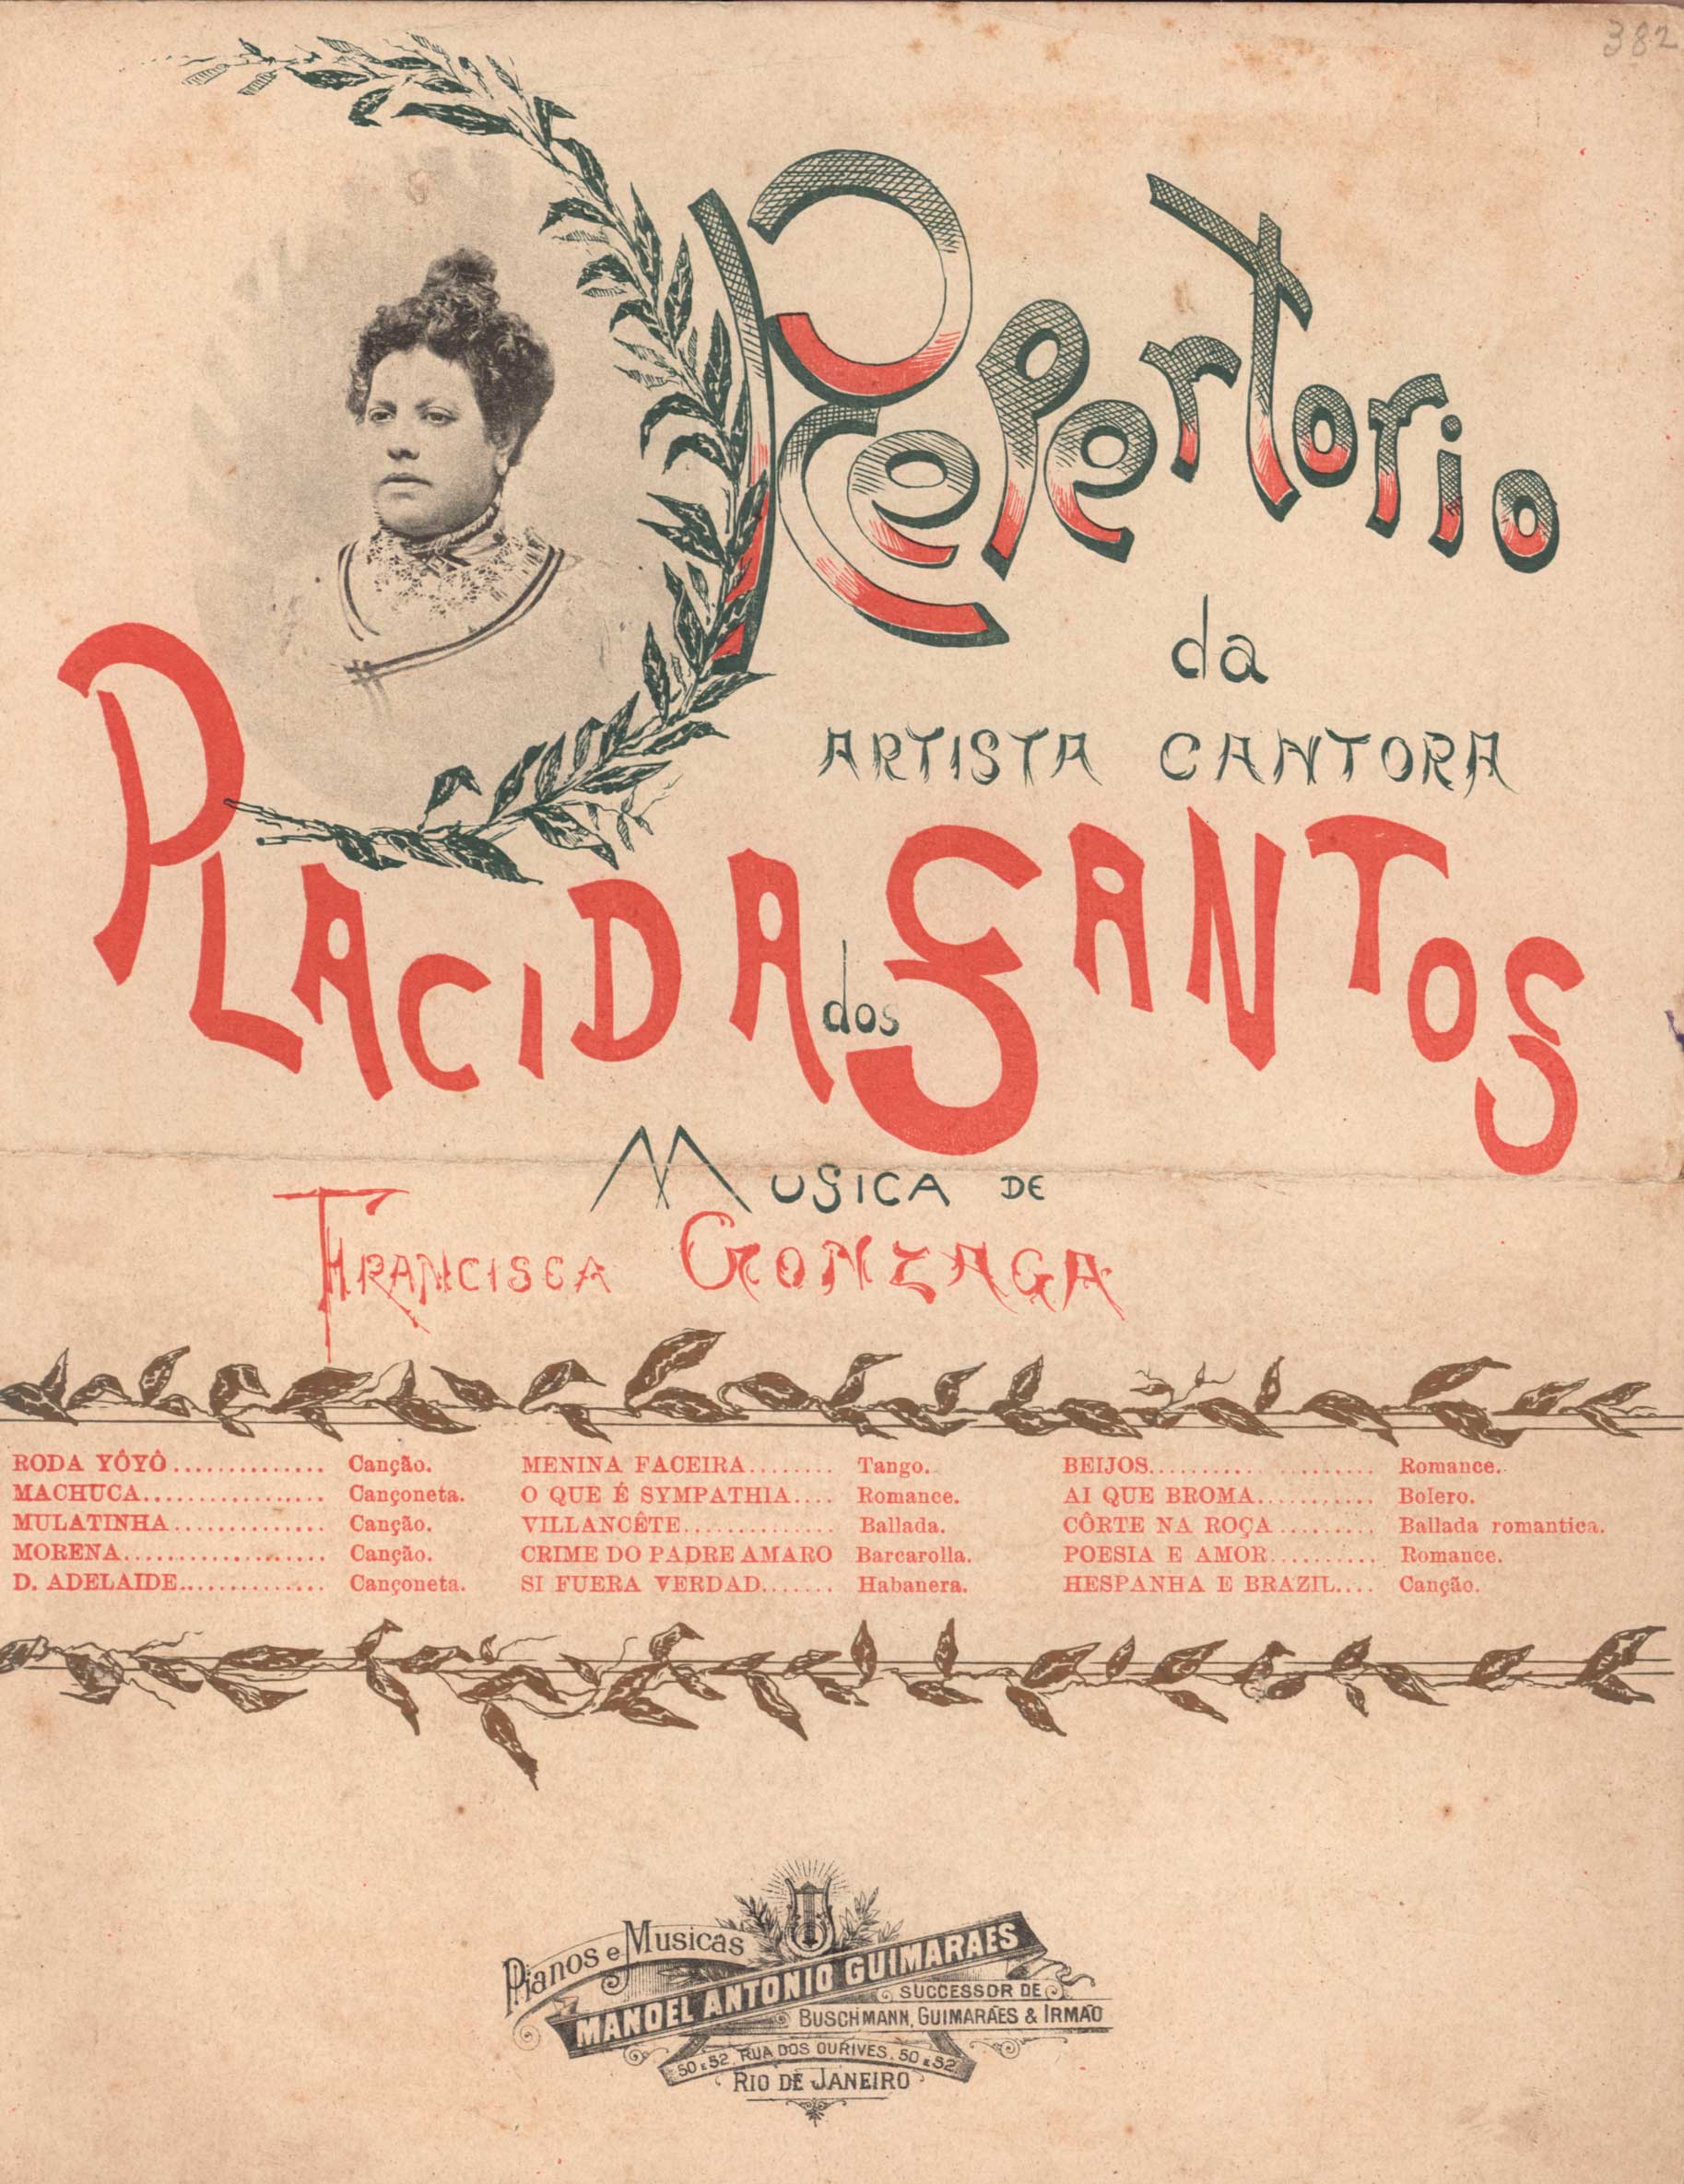 382
Repertorio
da
ARTISTA CANTORA
PLACIDA dos SANTOS
MUSICA DE
FRANCISCA GONZAGA
RODA YÔYÔ.............. Canção.
MACHUCA................. Cançoneta.
MULATINHA.............. Canção.
MORENA................... Canção.
D. ADELAIDE.............. Cançoneta.
MENINA FACEIRA........ Tango.
O QUE É SYMPATHIA.... Romance.
VILLANCÊTE.............. Ballada.
CRIME DO PADRE AMARO Barcarolla.
SI FUERA VERDAD....... Habanera.
BEIJOS..................... Romance.
AI QUE BROMA........... Bolero.
CÔRTE NA ROÇA......... Ballada romantica.
POESIA E AMOR.......... Romance.
HESPANHA E BRAZIL.... Canção.
Pianos e Musicas
MANOEL ANTONIO GUIMARAES
SUCCESSOR DE
BUSCHMANN, GUIMARÃES & IRMÃO
50 E 52, RUA DOS OURIVES, 50 E 52
RIO DE JANEIRO